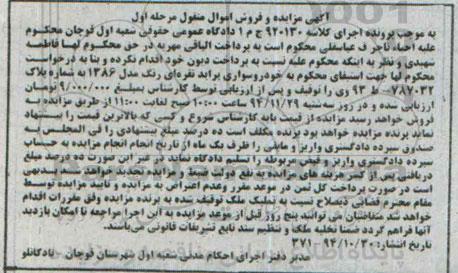 آگهی مزایده و فروش اموال منقول مرحله اول
به موجب پرونده اجرای کلاسه ۹۲۰۱۳۰ ج م ۱ دادگاه عمومی حقوقی شعبه اول قوچان محکوم
علیه احیاء تاجر ف عباسقلی محکوم است به پرداخت الباقی مهریه در حق محکوم لها فاطمه
شهیدی و نظر به اینکه محکوم علیه نسبت به پرداخت دیون خود اقدام نکرده و بنا به درخواست
محکوم لها جهت استیفای محکوم به خودروسواری پراید نقره‌ای رنگ مدل ۱۳۸۶ به شماره پلاک
۷۸۷۰۳۲ ط ۹۳ وی را توقیف و پس از ارزیابی توسط کارشناس بمبلغ ۹/۰۰۰/۰۰۰ تومان
ارزیابی شده و در روز سه‌شنبه ۹۴/۱۱/۲۹ ساعت ۱۰:۰۰ صبح لغایت ۱۱:۰۰ از طریق مزایده به
فروش خواهد رسید مزایده از قیمت پایه کارشناس شروع و کسی که بالاترین قیمت را پیشنهاد
نماید برنده مزایده خواهد بود برنده مکلف است ده درصد مبلغ پیشنهادی را فی المجلس به
صندوق سپرده دادگستری واریز و مابقی را ظرف یک ماه از تاریخ انجام انجام مزایده به حساب
سپرده دادگستری واریز و فیش مربوطه را تسلیم دادگاه نماید در غیر این صورت ده درصد مبلغ
دریافتی پس از کسر هزینه های مزایده به نفع دولت ضبط و مزایده تجدید خواهد شد بدیهی
است در صورت پرداخت کل ثمن در موعد مقرر وعدم اعتراض به مزایده و تایید مزایده توسط
مقام محترم قضائی ذیصلاح نسبت به تملیک ملک توقیف شده به برنده مزایده وفق مقررات اقدام
خواهد شد متقاضیان می توانند پنج روز قبل از موعد مزایده به این اجرا مراجعه تا امکان بازدید
آنها فراهم گردد ضمنا تخلیه ملک و تنظیم سند تابع تشریفات قانونی می‌باشند.
تاریخ انتشار: ۹۴/۱۰/۳۰ ۳۷۱
مدیر دفتر اجرای احکام مدنی شعبه اول شهرستان قوچان - یادکانلو